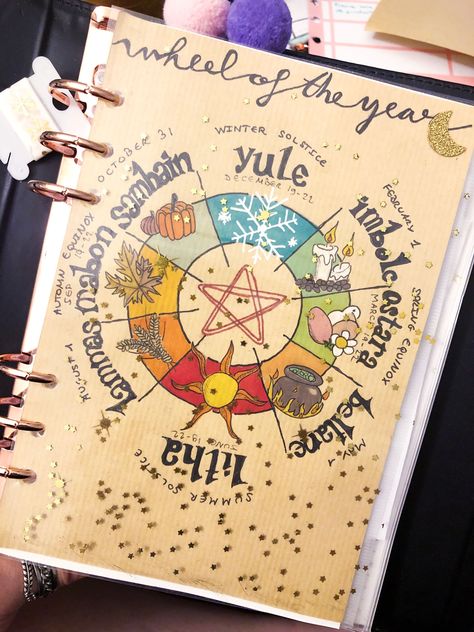 wheel of the year
WINTER SOLSTICE
yule
DECEMBER 19-22
FEBRUARY 1
imbolc
SPRING EQUINOX
ostara
MARCH
MAY 1
beltane
litha
JUNE 19-22
SUMMER SOLSTICE
AUGUST 1
lammas
AUTUMN EQUINOX
mabon
OCTOBER 31
samhain